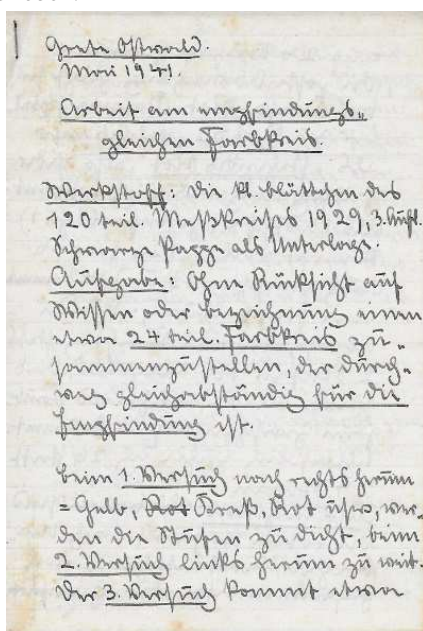 Grete Ostwald.
Mai 1941.
Arbeit am empfindungs=
gleichen Farbkreis.
Werkstoff: Die kl. Blättchen des
120 teil. Meßkreises 1929, 3. Aufl.
Schwarze Pappe als Unterlage.
Aufgabe: Ohne Rücksicht auf
Wissen oder Bezeichnung einen
etwa 24 teil. Farbkreis zu-
sammenzustellen, der durch-
weg gleichabständig für die
Empfindung ist.
Beim 1. Versuch nach rechts herum
= Gelb, Rot Kreß, Rot usw, wer-
den die Stufen zu dicht, beim
2. Versuch links herum zu weit.
Der 3. Versuch kommt etwa